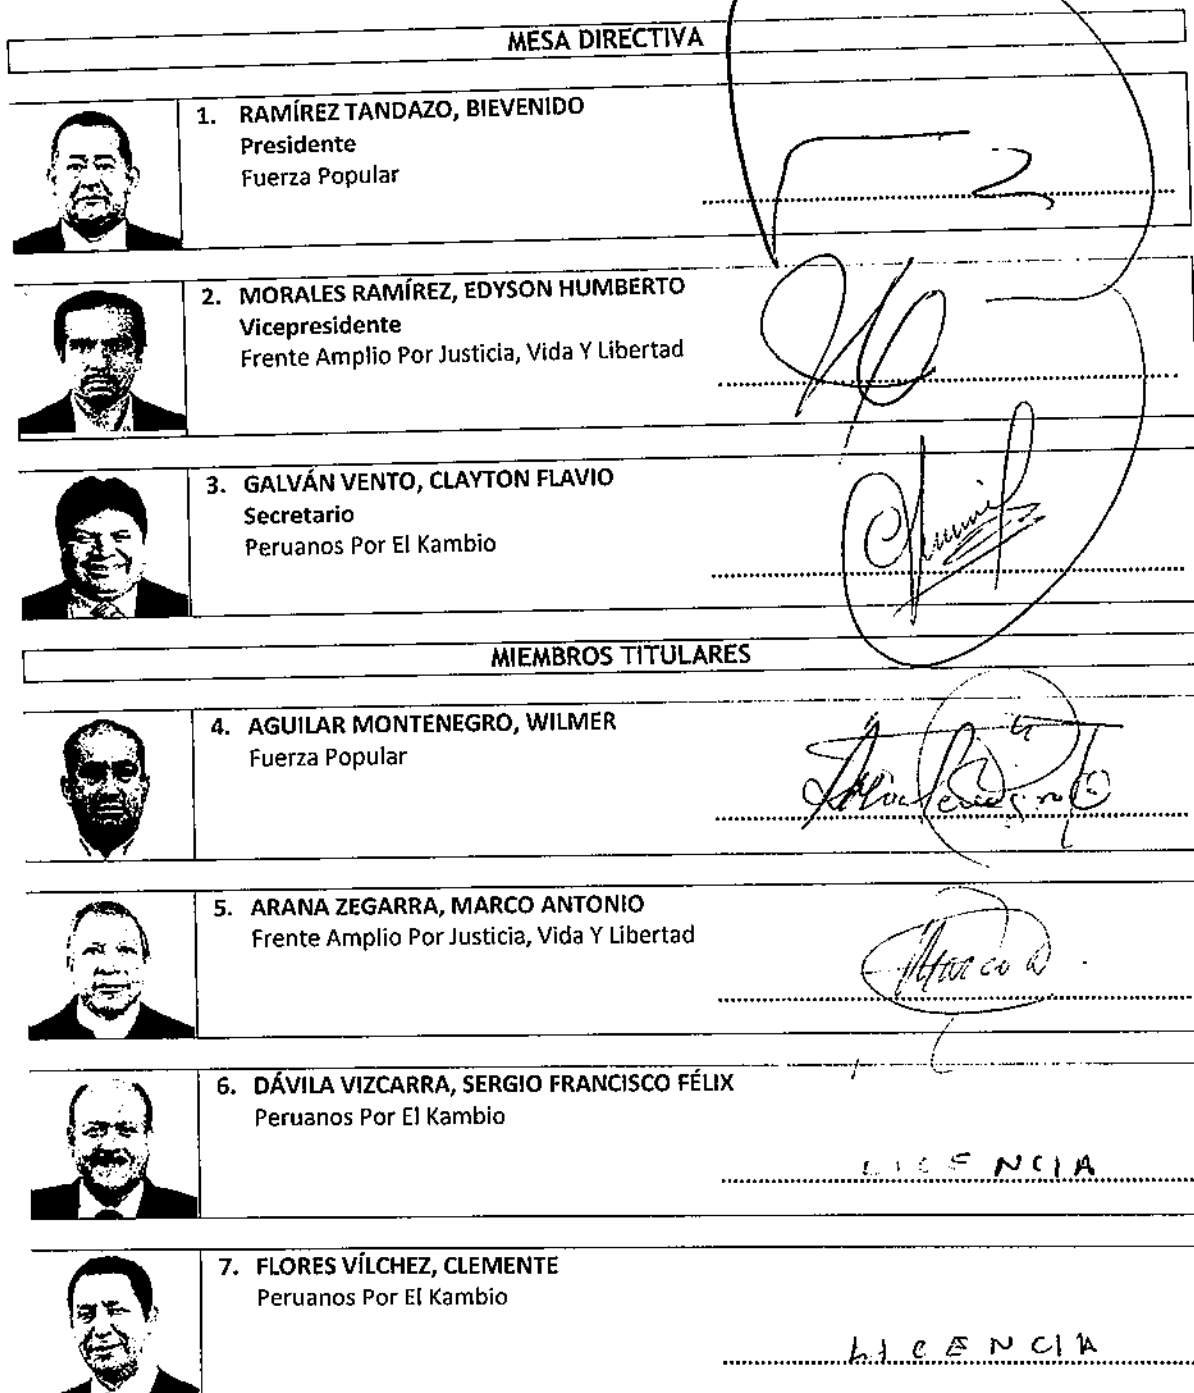 MESA DIRECTIVA
1. RAMÍREZ TANDAZO, BIEVENIDO
Presidente
Fuerza Popular
2. MORALES RAMÍREZ, EDYSON HUMBERTO
Vicepresidente
Frente Amplio Por Justicia, Vida Y Libertad
3. GALVÁN VENTO, CLAYTON FLAVIO
Secretario
Peruanos Por El Kambio
MIEMBROS TITULARES
4. AGUILAR MONTENEGRO, WILMER
Fuerza Popular
5. ARANA ZEGARRA, MARCO ANTONIO
Frente Amplio Por Justicia, Vida Y Libertad
Marco a
6. DÁVILA VIZCARRA, SERGIO FRANCISCO FÉLIX
Peruanos Por El Kambio
LICENCIA
7. FLORES VÍLCHEZ, CLEMENTE
Peruanos Por El Kambio
LICENCIA